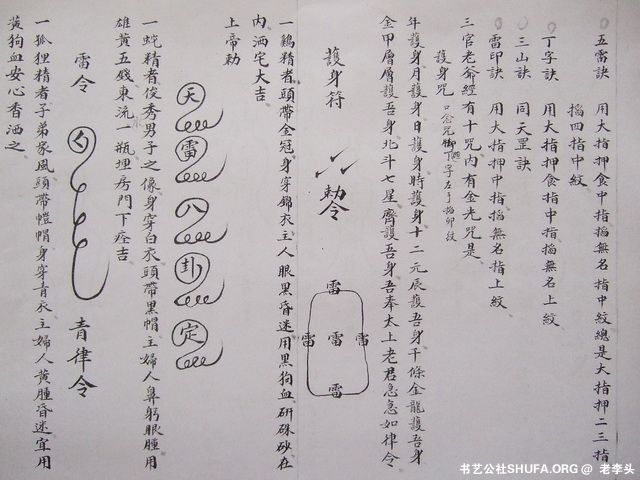 五雷訣 用大指押食中指掐無名指中紋總是大指押二三指
掐四指中紋
丁字訣 用大指押食指中指掐無名上紋
三山訣 同天罡訣
雷印訣 用大指押中指掐無名指上紋
三官老爺經有十咒內有金光咒是
護身咒 口念咒 下字左手掐卯紋
年護身月護身日護身時護身十二元辰護吾身千條金龍護吾身
金甲層層護吾身北斗七星齊護吾身吾奉太上老君急急如律令
護身符
勅令
雷
雷 雷 雷
雷
一鷄精者頭帶金冠身穿錦衣主人眼黑昏迷用黑狗血研硃砂在
內洒宅大吉
上帝勅
天
雷
八
卦
定
一蛇精者俊秀男子之像身穿白衣頭帶黑帽主婦人鼻躬眼腫用
雄黃五錢東流一瓶埋房門下座吉
雷令
青律令
一狐狸精者子弟家風頭帶帽身穿青衣主婦人黃腫昏迷宜用
黃狗血安心香洒之
书艺公社SHUFA.ORG @ 老李头